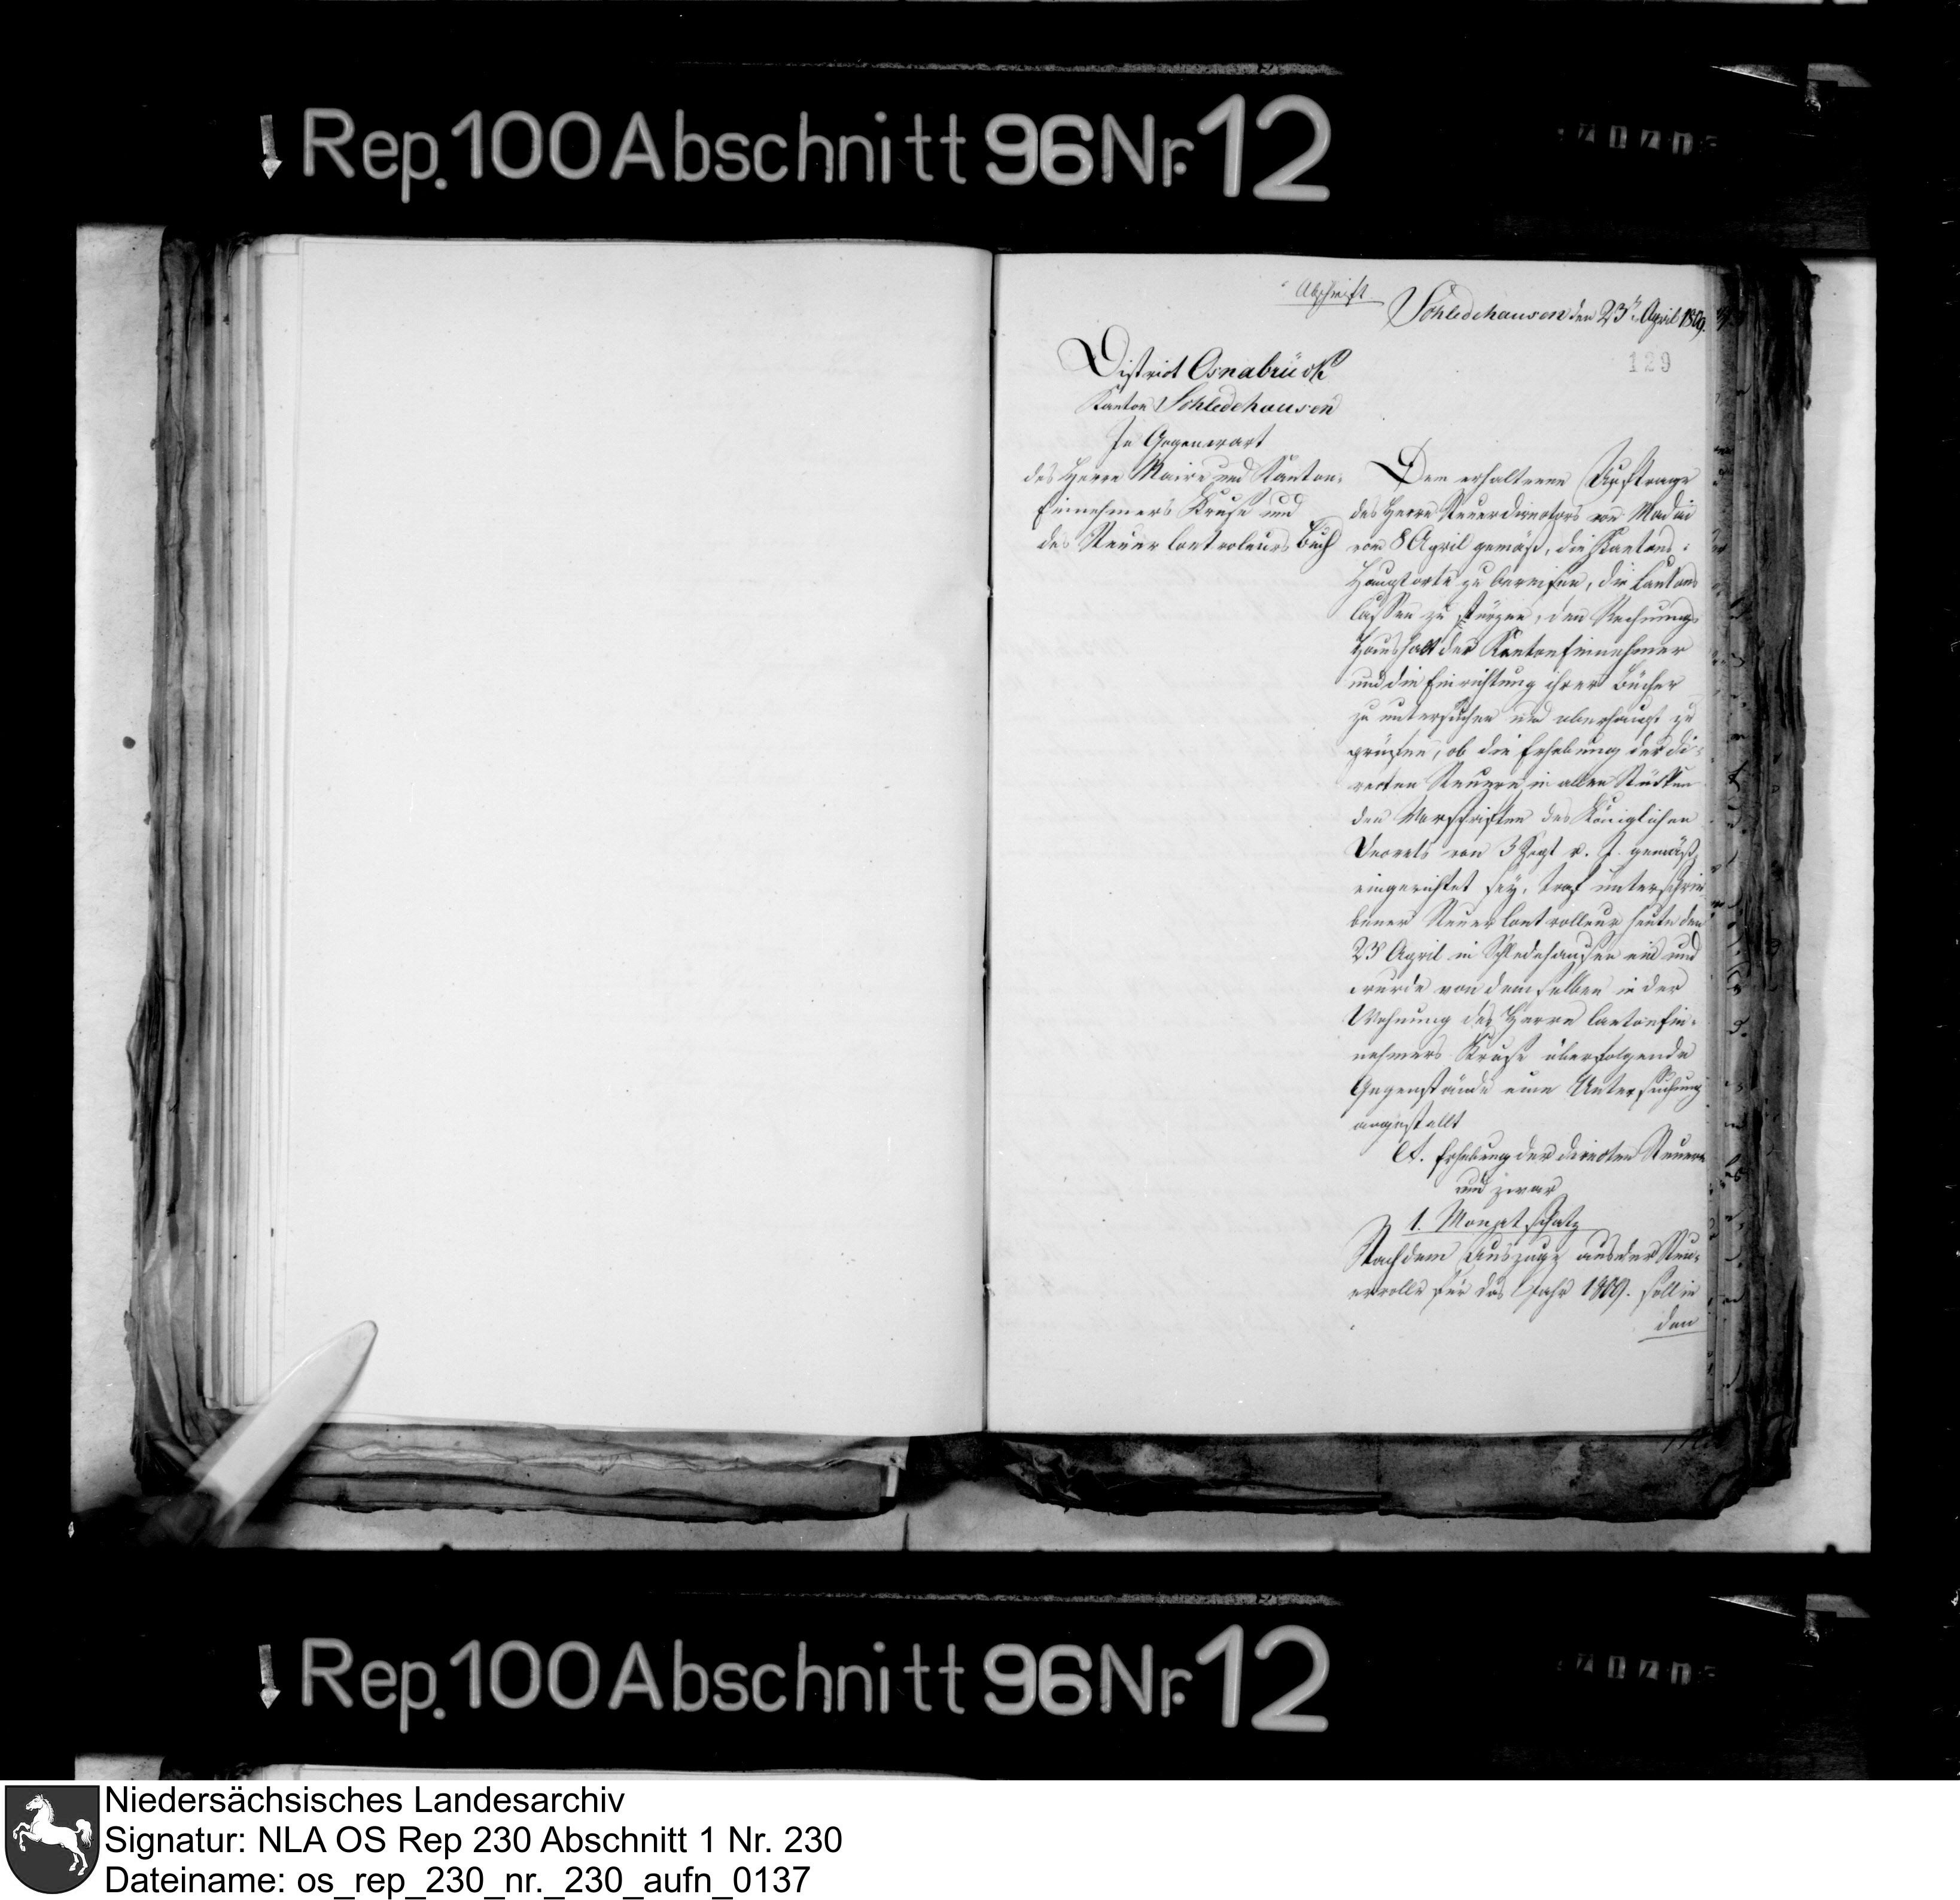 Rep. 100 Abschnitt 96 Nr. 12
Abschrift
Schledehausen den 23t. April 1809.
129
District Osnabrück
Kanton Schledehausen
In Gegenwart
des Herrn Maire und Kanton-
Einnehmers Kruse und
des Steuer Controleurs Buch
Dem erhaltenen Auftrage
des Herrn Steuerdirectors von Madai
vom 8 April gemäß, die Kantons-
Hauptorte zu bereisen, die Cantons
Cassen zu stürzen, den Rechnungs
Haushalt der Kantoneinnehmer
und die Einrichtung ihrer Bücher
zu untersuchen und überhaupt zu
prüfen, ob die Erhebung der di-
recten Steuern in allen Stücken
den Vorschriften des Königlichen
Decrets von 3 Sept v. J. gemäß
eingerichtet sey, traf unterschrie
bener Steuer Controlleur heute den
23 April in Schledehausen ein und
wurde von demselben in der
Wohnung des Herrn Cantonein-
nehmers Kruse über folgende
Gegenstände eine Untersuchung
angestellt
A. Erhebung der directen Steuern
und zwar
1. Monatschatz
Nach dem Auszuge aus der Steu-
errolle für das Jahr 1809. soll in
den
Rep. 100 Abschnitt 96 Nr. 12
Niedersächsisches Landesarchiv
Signatur: NLA OS Rep 230 Abschnitt 1 Nr. 230
Dateiname: os_rep_230_nr._230_aufn_0137